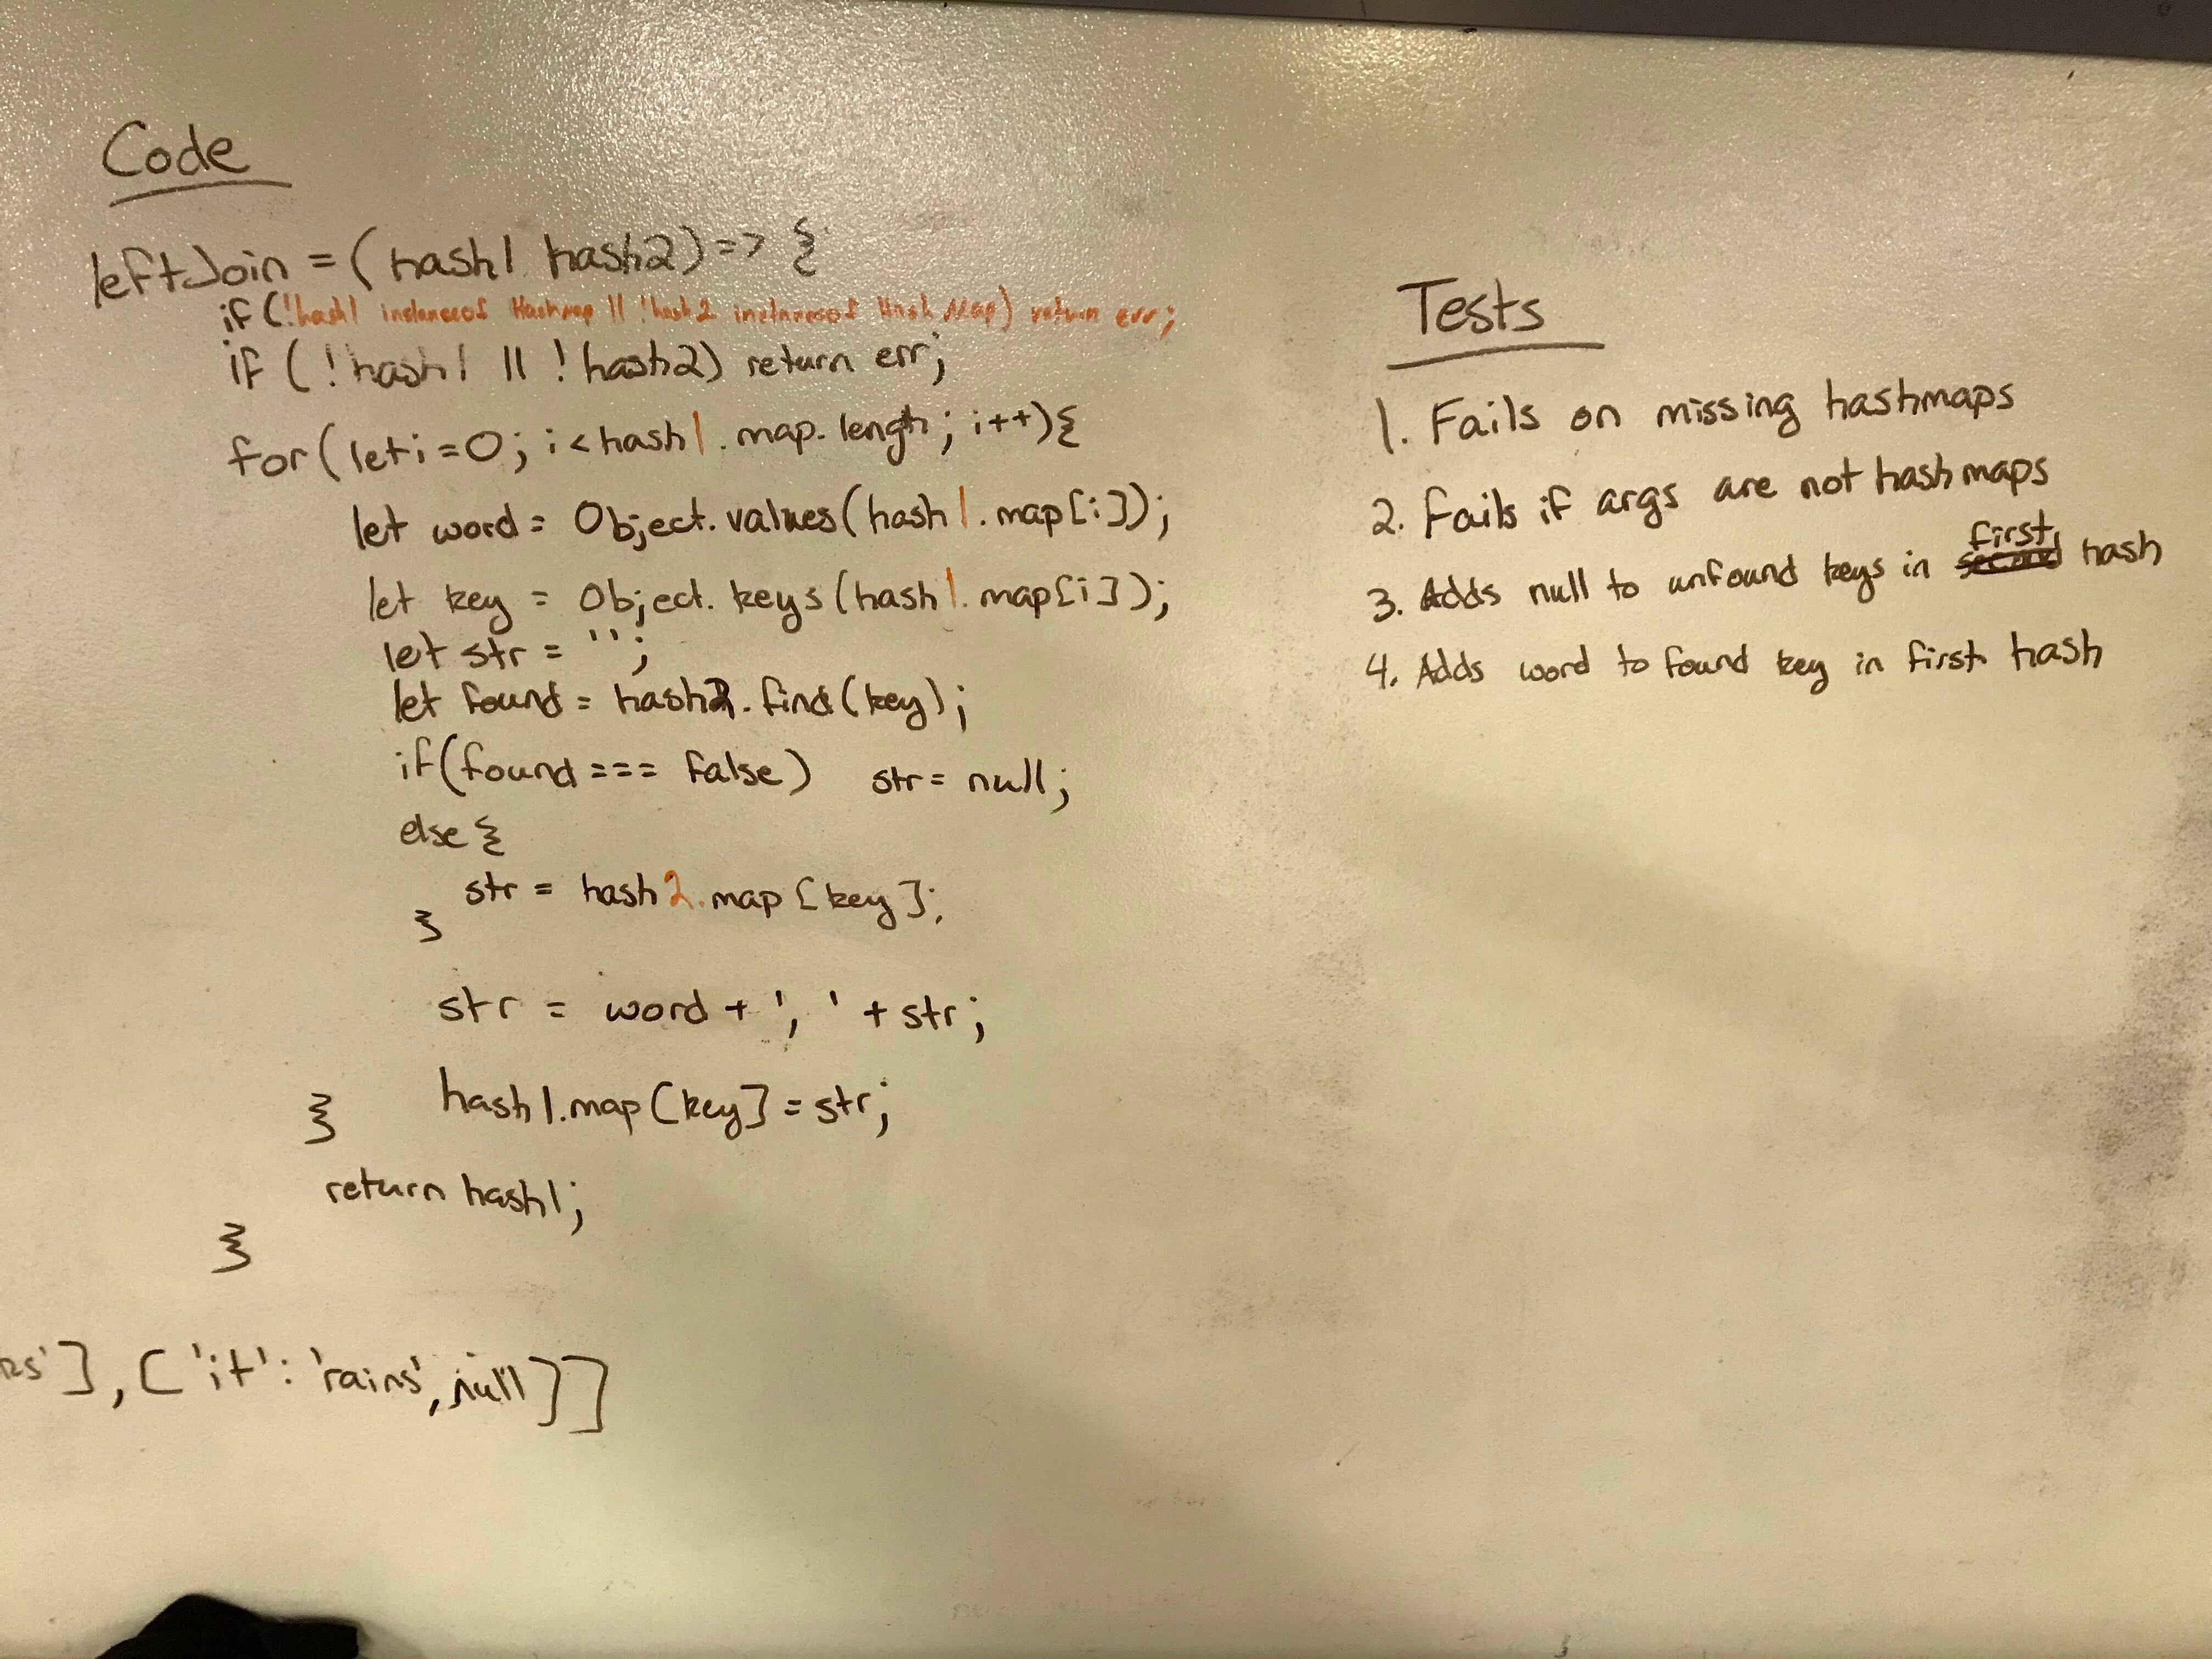 Code
leftJoin = (hash1 hash2) => {
if (!hash1 instanceof Hashmap || !hash2 instanceof Hash Map) return err;
if (!hash1 || !hash2) return err;
for (let i = 0; i < hash1.map.length; i++) {
let word = Object.values(hash1.map[i]);
let key = Object.keys(hash1.map[i]);
let str = '';
let found = hash2.find(key);
if (found === false) str = null;
else {
str = hash2.map[key];
}
str = word + ', ' + str;
hash1.map[key] = str;
}
return hash1;
}
'], ['it': 'rains', null]]
Tests
1. Fails on missing hashmaps
2. Fails if args are not hashmaps
3. Adds null to unfound keys in first hash
4. Adds word to found key in first hash